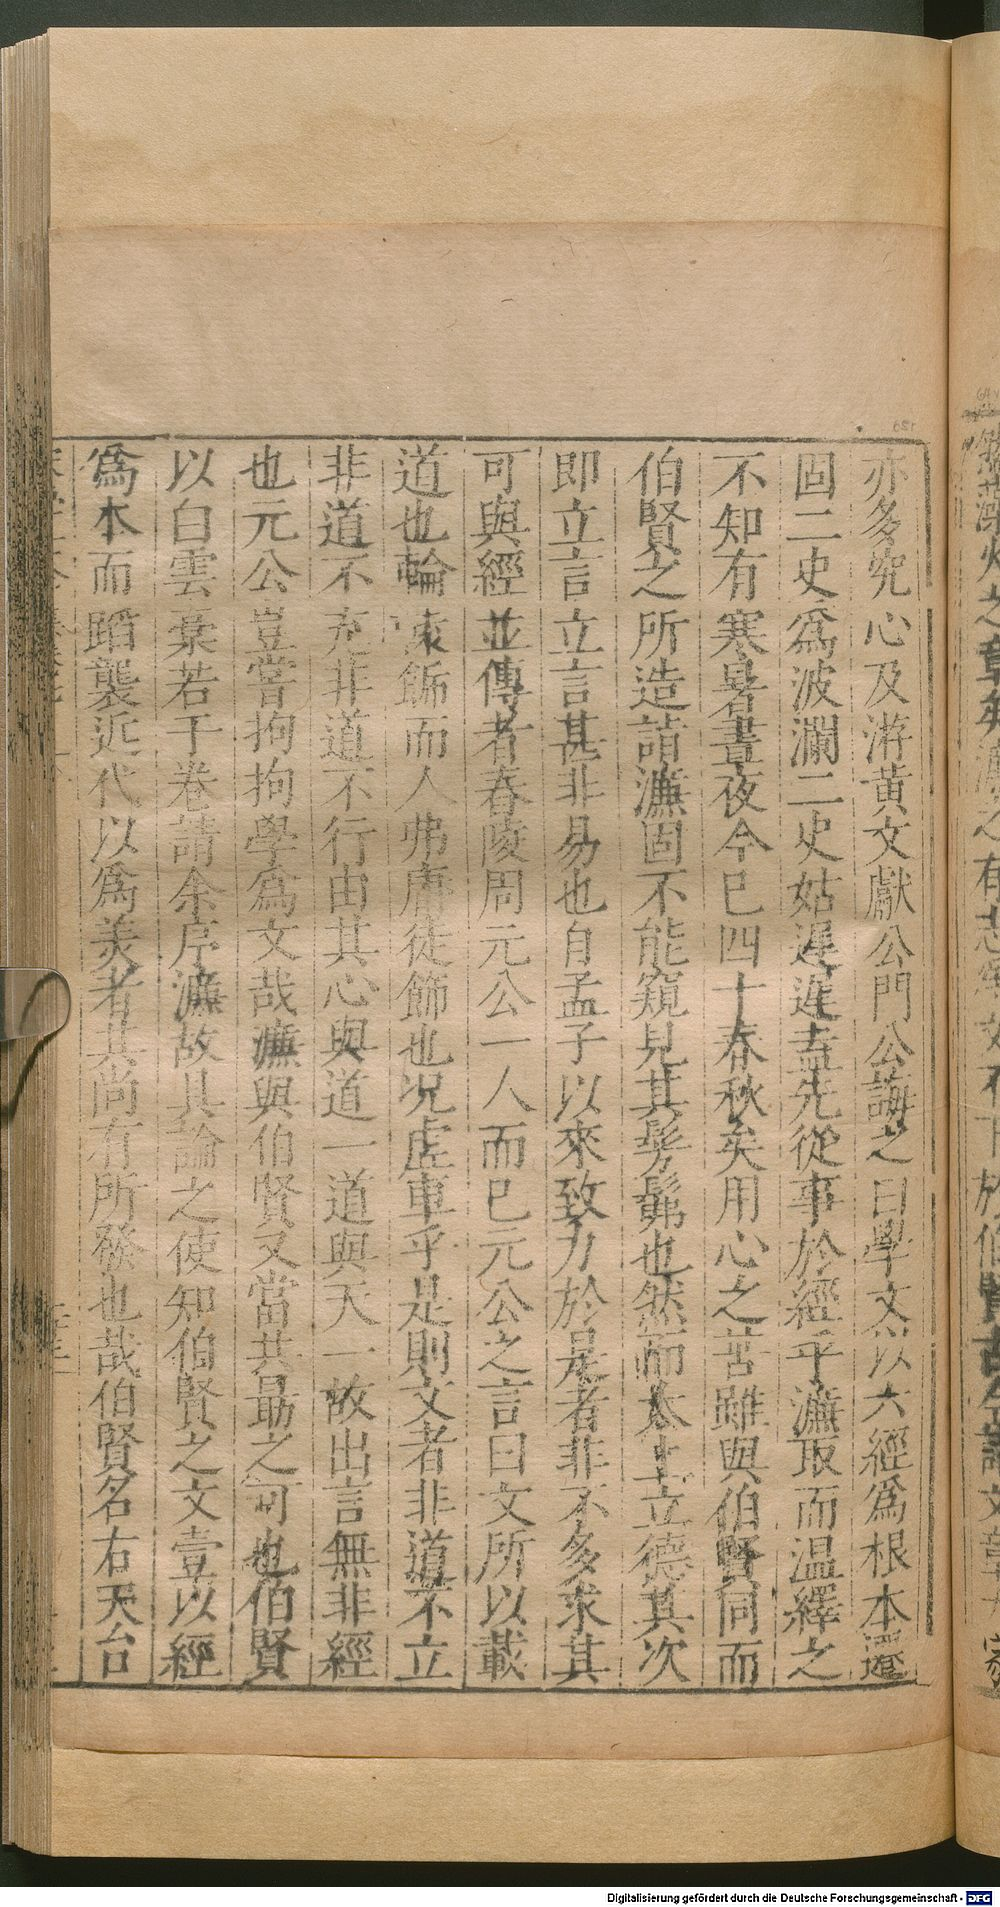 亦多究心及游黄文獻公門公誨之曰學文以六經爲根本遷
固二史爲波瀾二史姑遲遲盍先從事於經乎濂取而温繹之
不知有寒暑晝夜今已四十春秋矣用心之苦雖與伯賢同而
伯賢之所造詣濂固不能窺見其髣髴也然而太上立德其次
即立言立言甚非易也自孟子以來致力於是者非不多求其
可與經並傳者舂陵周元公一人而已元公之言曰文所以載
道也輪轅飾而人弗庸徒飾也况虚車乎是則文者非道不立
非道不充非道不行由其心與道一道與天一故出言無非經
也元公豈嘗拘拘學爲文哉濂與伯賢又當共勗之可也伯賢
以白雲稾若干卷請余序濂故具論之使知伯賢之文壹以經
爲本而蹈襲近代以爲美者其尚有所發也哉伯賢名右天台
Digitalisierung gefördert durch die Deutsche Forschungsgemeinschaft - DFG